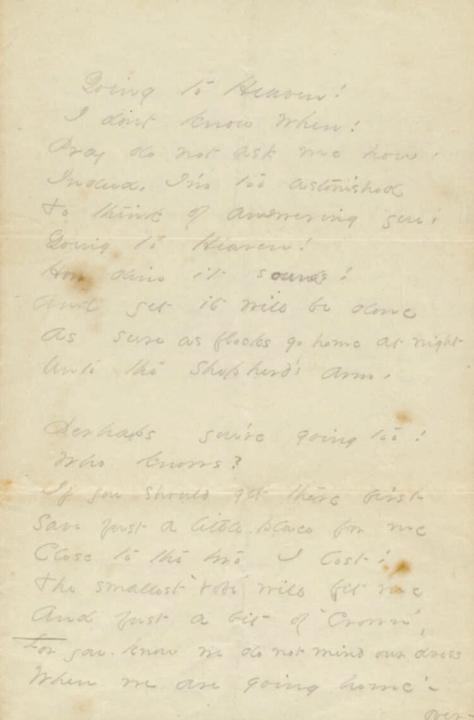 Going to Heaven!
I don't know when!
Pray do not ask me how!
Indeed, I'm too astonished
To think of answering you!
Going to Heaven!
How dim it sounds!
And yet it will be done
As sure as flocks go home at night
Unto the Shepherd's arm!
Perhaps you're going too!
Who knows?
If you should get there first
Save just a little place for me
Close to the two I lost!
The smallest "robe" will fit me
And just a bit of "Crown",
For you know we do not mind our dress
When we are going home -
over